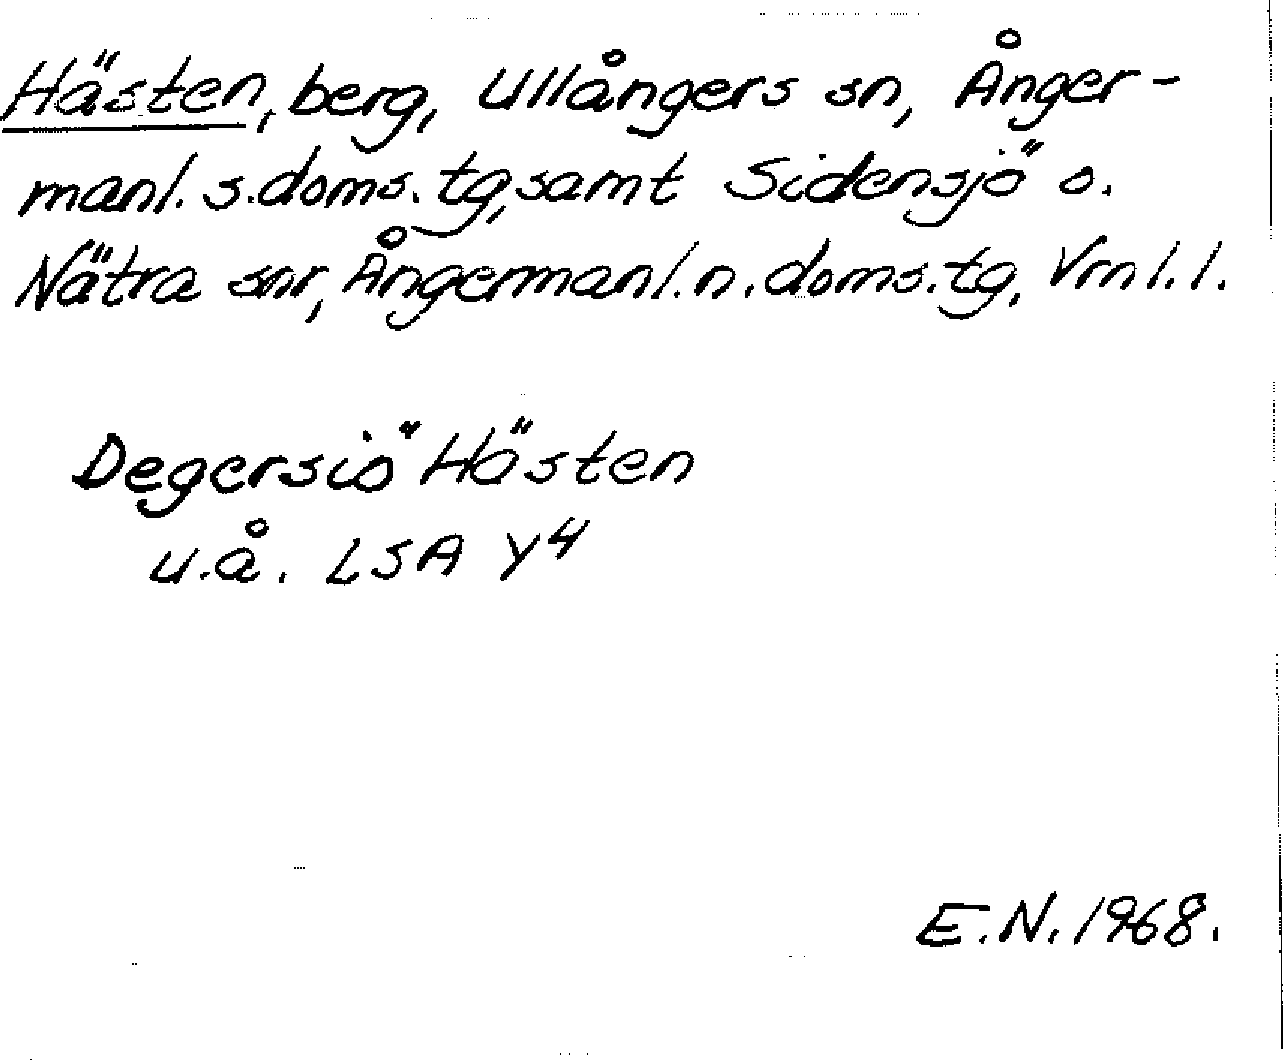 Hästen, berg, Ullångers sn, Ånger-
manl. s. doms. tg, samt Sidensjö o.
Nätra snr, Ångermanl. n. doms. tg, Vrnl. l.
Degersjö Hästen
u.å. LSA Y4
E.N. 1968.